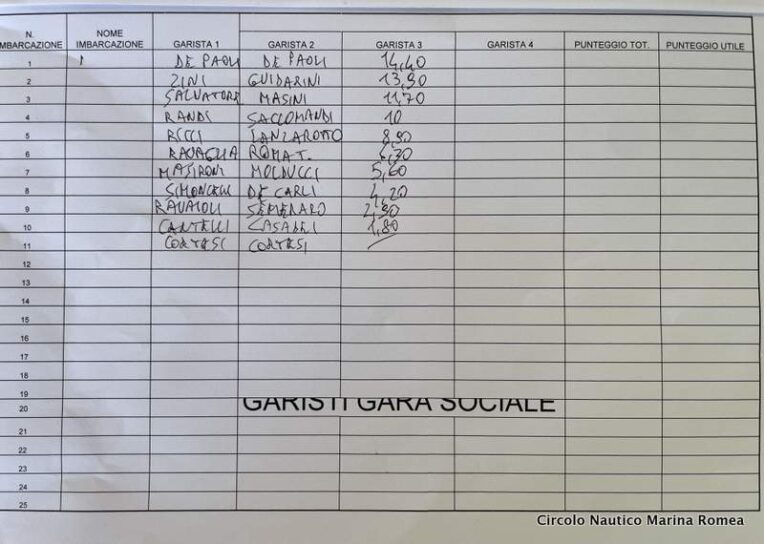 N. IMBARCAZIONE NOME IMBARCAZIONE GARISTA 1 GARISTA 2 GARISTA 3 GARISTA 4 PUNTEGGIO TOT. PUNTEGGIO UTILE
1 DE PAOLI DE PAOLI 14,40
2 ZINI GUIDARINI 13,90
3 SALVATORE MASINI 11,70
4 RANDI SACCOMANDI 10
5 RICCI LANZAROTTO 8,90
6 RAVAGLIA ROMA T. 6,30
7 MASIRONI MOLDUCCI 5,60
8 SIMONCELLI DE CARLI 4,20
9 RAVAIOLI SEMERARO 2,90
10 CANTELLI CASADEI 1,80
11 CORTESI CORTESI
12
13
14
15
16
17
18
19
GARISTI GARA SOCIALE
20
21
22
23
24
25
Circolo Nautico Marina Romea